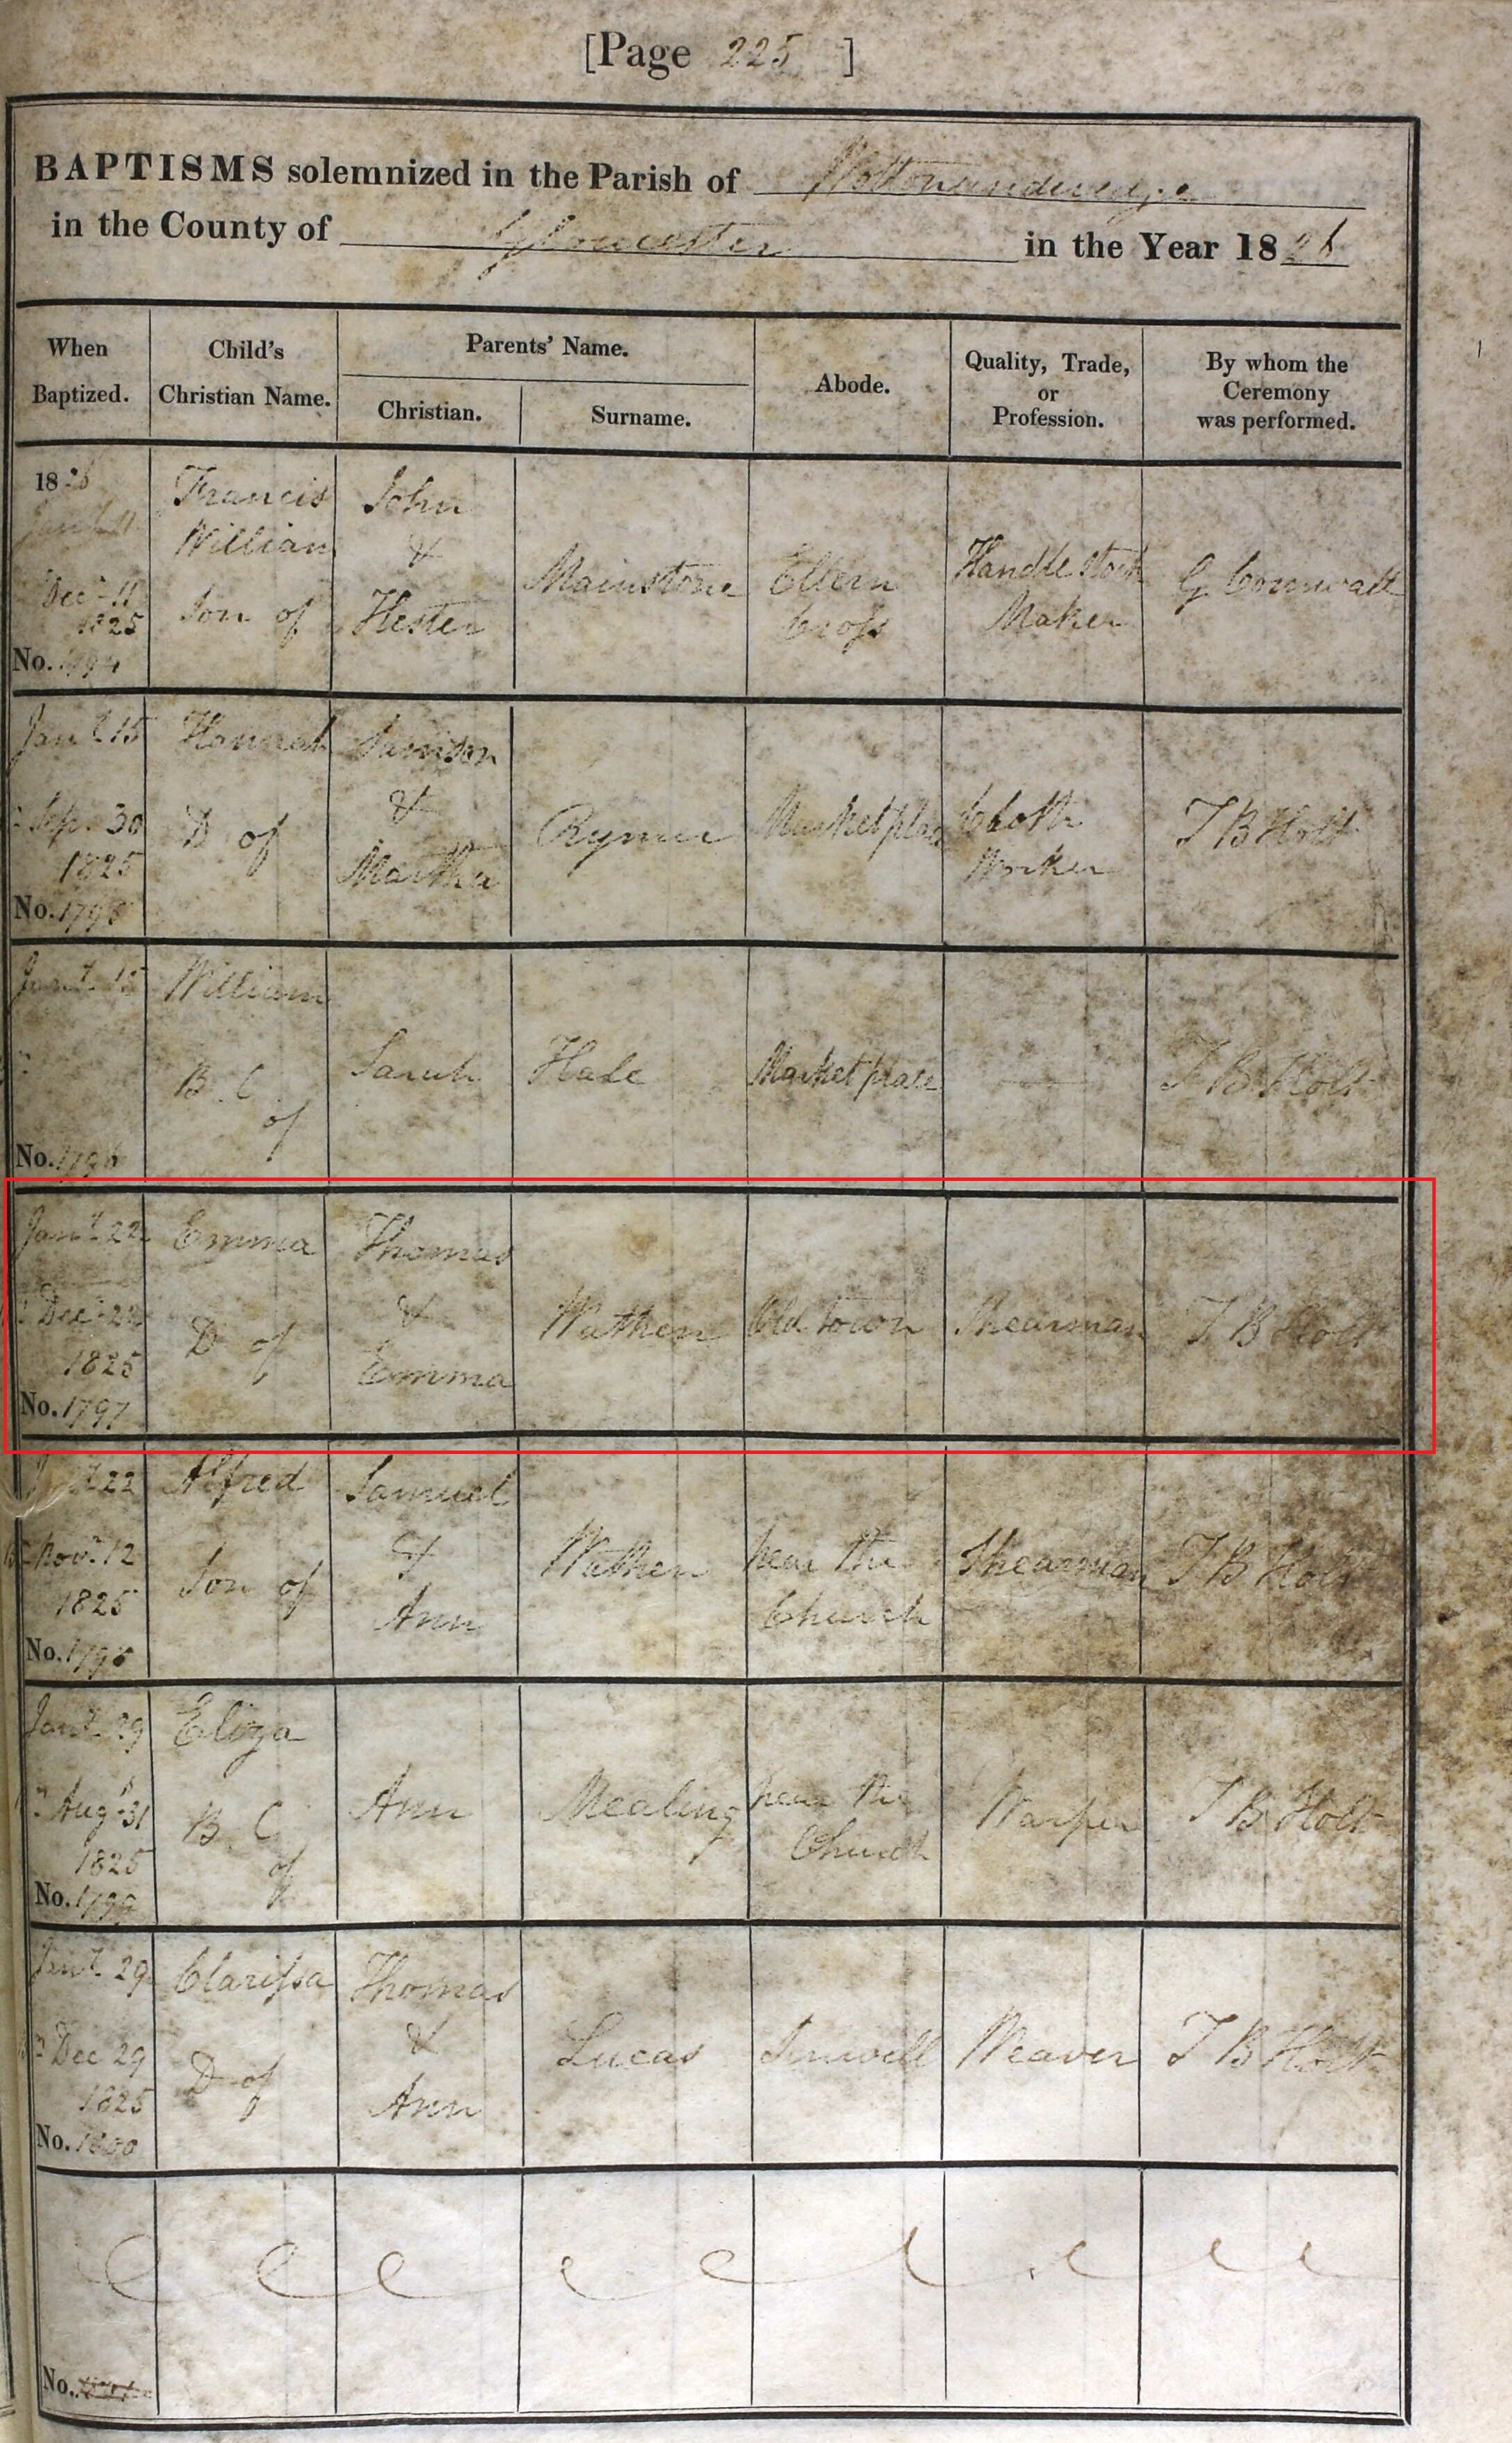 [Page 225 ]
BAPTISMS solemnized in the Parish of Wottonunderedge
in the County of Gloucester in the Year 1826
When Baptized.
Child's Christian Name.
Parents' Name.
Christian.
Surname.
Abode.
Quality, Trade, or Profession.
By whom the Ceremony was performed.
1826
Jany 11
Decr 11
1825
No. 1794
Francis
William
Son of
John
&
Hester
Mainstone
Ellern
Cross
Handle stock
Maker
G. Cornwall
Jany 15
Sep. 30
1825
No. 1795
Hannah
D of
Samson
&
Martha
Rymer
Marketplace
Cloth
Worker
T B Holt
Jany 15
No. 1796
William
B. C.
of
Sarah
Hale
Market place
T B Holt
Jany 22
Decr 22
1825
No. 1797
Emma
D of
Thomas
&
Emma
Wathen
Old Town
Shearman
T B Holt
Jany 22
Novr 12
1825
No. 1798
Alfred
Son of
Samuel
&
Ann
Wathen
near the
Church
Shearman
T B Holt
Jany 29
Augt 31
1825
No. 1799
Eliza
B. C.
of
Ann
Mealing
near the
Church
Warper
T B Holt
Jany 29
Dec 29
1825
No. 1800
Clarissa
D of
Thomas
&
Ann
Lucas
Sinwell
Weaver
T B Holt
No.